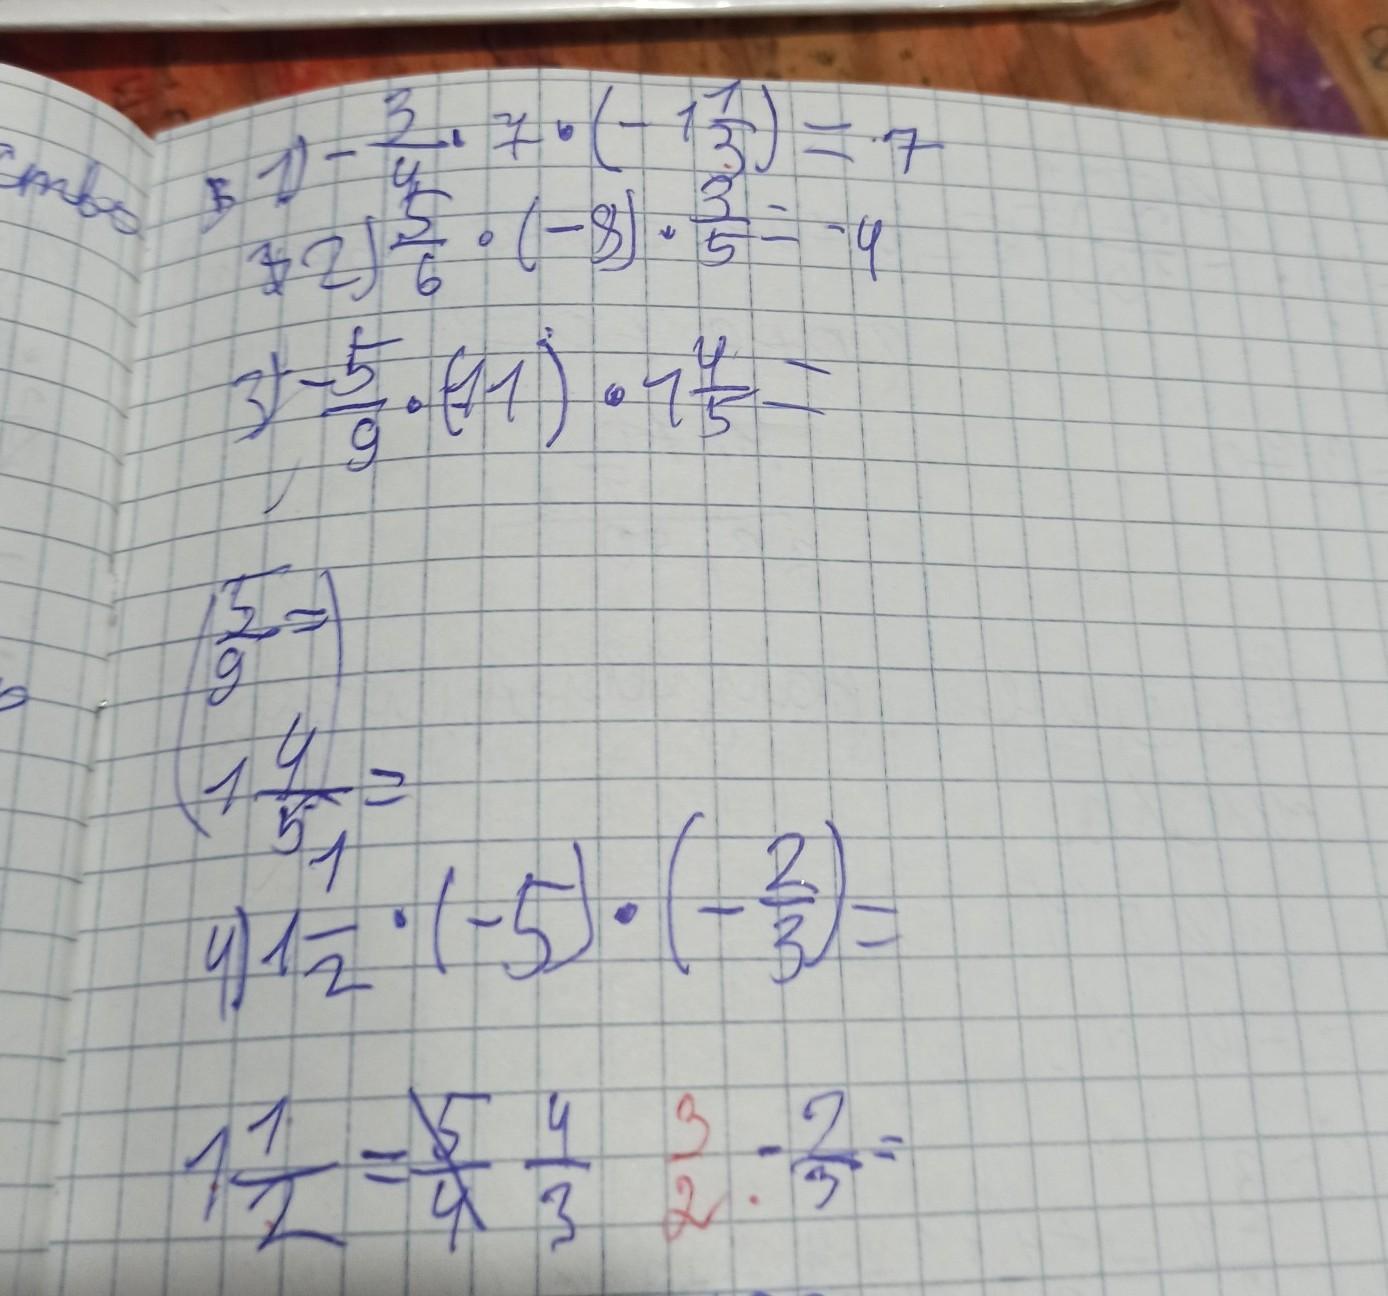 1) - 3/4 · 7 · (- 1 1/3) = 7
2) 5/6 · (-8) · 3/5 = -4
3) - 5/9 · (-11) · 1 4/5 =
5/9 =
1 4/5 =
4) 1 1/2 · (-5) · (- 2/3) =
1 1/2 = 5/4 4/3 3/2 · - 2/3 =